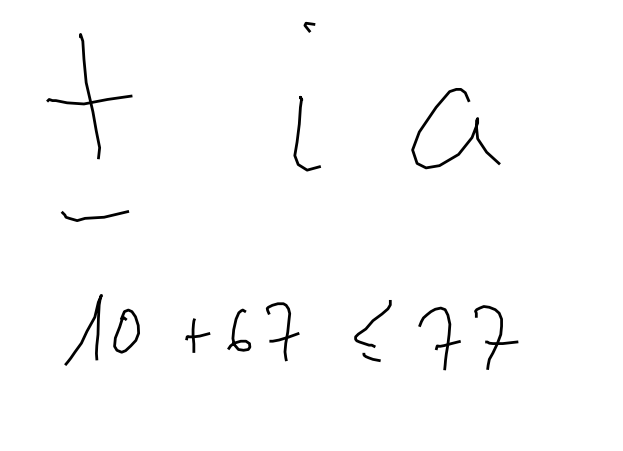 ± i a
10 + 67 ≤ 77